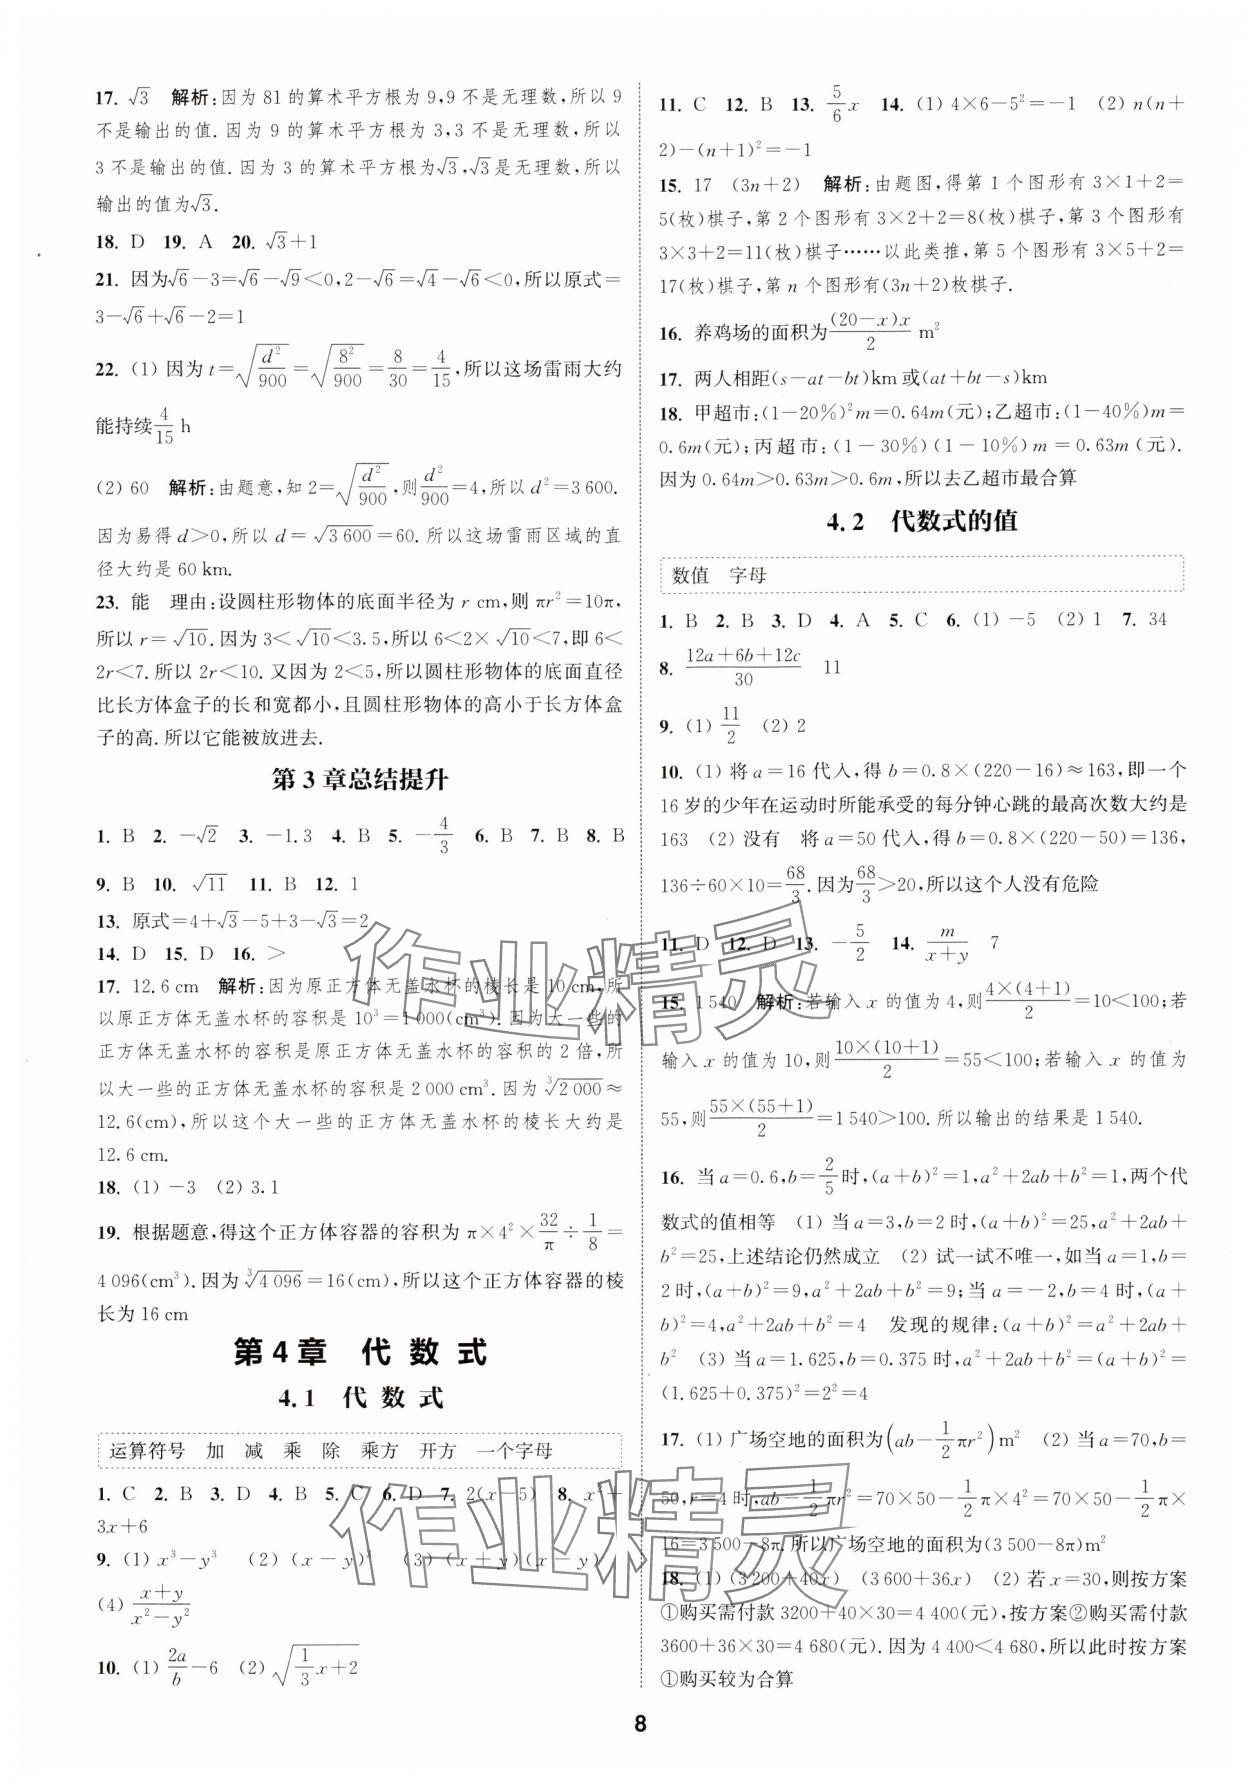 17. √3 解析:因为 81 的算术平方根为 9,9 不是无理数,所以 9
不是输出的值. 因为 9 的算术平方根为 3,3 不是无理数,所以
3 不是输出的值. 因为 3 的算术平方根为√3,√3是无理数,所以
输出的值为√3.
18. D 19. A 20. √3+1
21. 因为√6-3=√6-√9<0,2-√6=√4-√6<0,所以原式=
3-√6+√6-2=1
22. (1) 因为 t=√(d²/900)=√(8²/900)=8/30=4/15,所以这场雷雨大约
能持续4/15 h
(2) 60 解析:由题意,知 2=√(d²/900),则d²/900=4,所以 d²=3 600.
因为易得 d>0,所以 d=√3 600=60. 所以这场雷雨区域的直
径大约是 60 km.
23. 能 理由:设圆柱形物体的底面半径为 r cm,则 πr²=10π,
所以 r=√10. 因为 3<√10<3.5,所以 6<2×√10<7,即 6<
2r<7. 所以 2r<10. 又因为 2<5,所以圆柱形物体的底面直径
比长方体盒子的长和宽都小,且圆柱形物体的高小于长方体盒
子的高. 所以它能被放进去.
第 3 章总结提升
1. B 2. -√2 3. -1.3 4. B 5. -4/3 6. B 7. B 8. B
9. B 10. √11 11. B 12. 1
13. 原式=4+√3-5+3-√3=2
14. D 15. D 16. >
17. 12.6 cm 解析:因为原正方体无盖水杯的棱长是 10 cm,所
以原正方体无盖水杯的容积是 10³=1 000(cm³). 因为大一些的
正方体无盖水杯的容积是原正方体无盖水杯的容积的 2 倍,所
以大一些的正方体无盖水杯的容积是 2 000 cm³. 因为 ³√2 000≈
12.6(cm),所以这个大一些的正方体无盖水杯的棱长大约是
12.6 cm.
18. (1) -3 (2) 3.1
19. 根据题意,得这个正方体容器的容积为 π×4²×32/π÷1/8=
4 096(cm³). 因为 ³√4 096=16(cm),所以这个正方体容器的棱
长为 16 cm
第 4 章 代 数 式
4.1 代 数 式
运算符号 加 减 乘 除 乘方 开方 一个字母
1. C 2. B 3. D 4. B 5. C 6. D 7. 2(x-5) 8. x²+
3x+6
9. (1) x³-y³ (2) (x-y)³ (3) (x+y)(x-y)
(4) (x+y)/(x²-y²)
10. (1) 2a/b-6 (2) √(1/3x+2)
11. C 12. B 13. 5/6x 14. (1) 4×6-5²=-1 (2) n(n+
2)-(n+1)²=-1
15. 17 (3n+2) 解析:由题图,得第 1 个图形有 3×1+2=
5(枚)棋子,第 2 个图形有 3×2+2=8(枚)棋子,第 3 个图形有
3×3+2=11(枚)棋子……以此类推,第 5 个图形有 3×5+2=
17(枚)棋子,第 n 个图形有(3n+2)枚棋子.
16. 养鸡场的面积为(20-x)x/2 m²
17. 两人相距(s-at-bt)km 或(at+bt-s)km
18. 甲超市:(1-20%)²m=0.64m(元);乙超市:(1-40%)m=
0.6m(元);丙超市:(1-30%)(1-10%)m=0.63m(元).
因为 0.64m>0.63m>0.6m,所以去乙超市最合算
4.2 代数式的值
数值 字母
1. B 2. B 3. D 4. A 5. C 6. (1) -5 (2) 1 7. 34
8. (12a+6b+12c)/30 11
9. (1) 11/2 (2) 2
10. (1) 将 a=16 代入,得 b=0.8×(220-16)≈163,即一个
16 岁的少年在运动时所能承受的每分钟心跳的最高次数大约是
163 (2) 没有 将 a=50 代入,得 b=0.8×(220-50)=136,
136÷60×10=68/3. 因为68/3>20,所以这个人没有危险
11. D 12. D 13. -5/2 14. m/(x+y) 7
15. 1 540 解析:若输入 x 的值为 4,则4×(4+1)/2=10<100;若
输入 x 的值为 10,则10×(10+1)/2=55<100;若输入 x 的值为
55,则55×(55+1)/2=1 540>100. 所以输出的结果是 1 540.
16. 当 a=0.6,b=2/5时,(a+b)²=1,a²+2ab+b²=1,两个代
数式的值相等 (1) 当 a=3,b=2 时,(a+b)²=25,a²+2ab+
b²=25,上述结论仍然成立 (2) 试一试不唯一,如当 a=1,b=
2时,(a+b)²=9,a²+2ab+b²=9;当 a=-2,b=4 时,(a+
b)²=4,a²+2ab+b²=4 发现的规律:(a+b)²=a²+2ab+
b² (3) 当 a=1.625,b=0.375 时,a²+2ab+b²=(a+b)²=
(1.625+0.375)²=2²=4
17. (1) 广场空地的面积为(ab-1/2πr²)m² (2) 当 a=70,b=
50,r=4 时,ab-1/2πr²=70×50-1/2π×4²=70×50-1/2π×
16=3 500-8π. 所以广场空地的面积为(3 500-8π)m²
18. (1) (3 200+40x) (3 600+36x) (2) 若 x=30,则按方案
①购买需付款 3200+40×30=4 400(元),按方案②购买需付款
3600+36×30=4 680(元). 因为 4 400<4 680,所以此时按方案
①购买较为合算
8
作业精灵
作业精灵